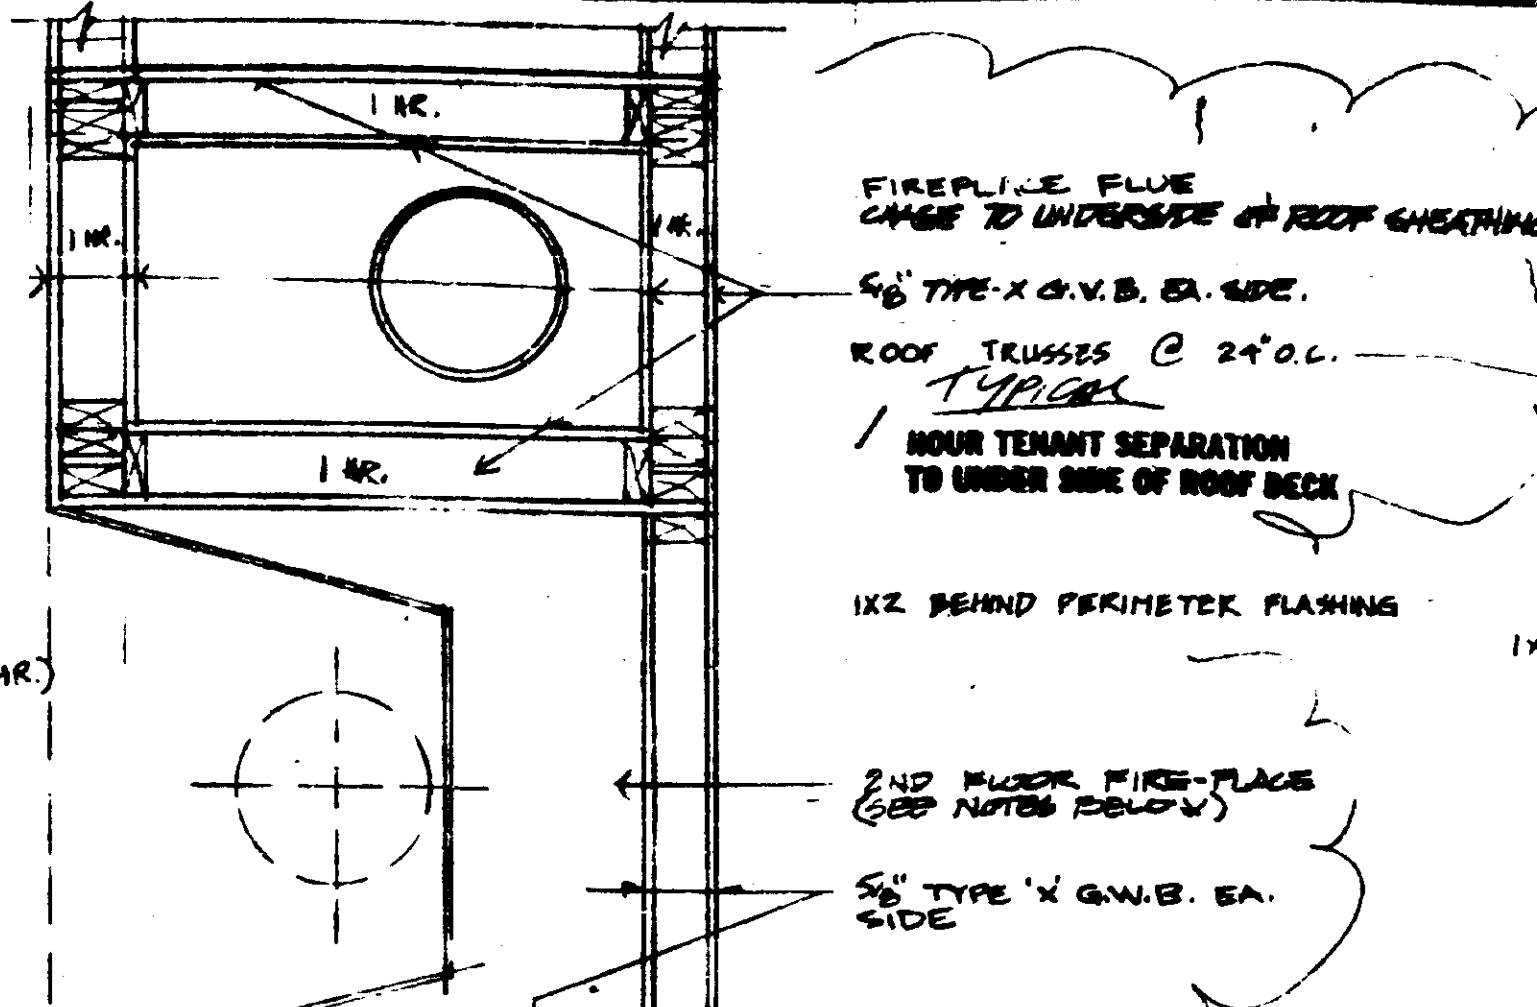 1 HR.
FIREPLACE FLUE
CHASE TO UNDERSIDE OF ROOF SHEATHING
1 HR.
1 HR.
5/8" TYPE-X G.W.B. EA. SIDE.
ROOF TRUSSES @ 24" O.C.
TYPICAL
1 HOUR TENANT SEPARATION
TO UNDER SIDE OF ROOF DECK
1 HR.
1X2 BEHIND PERIMETER FLASHING
HR.)
2ND FLOOR FIRE-PLACE
(SEE NOTES BELOW)
5/8" TYPE 'X' G.W.B. EA.
SIDE